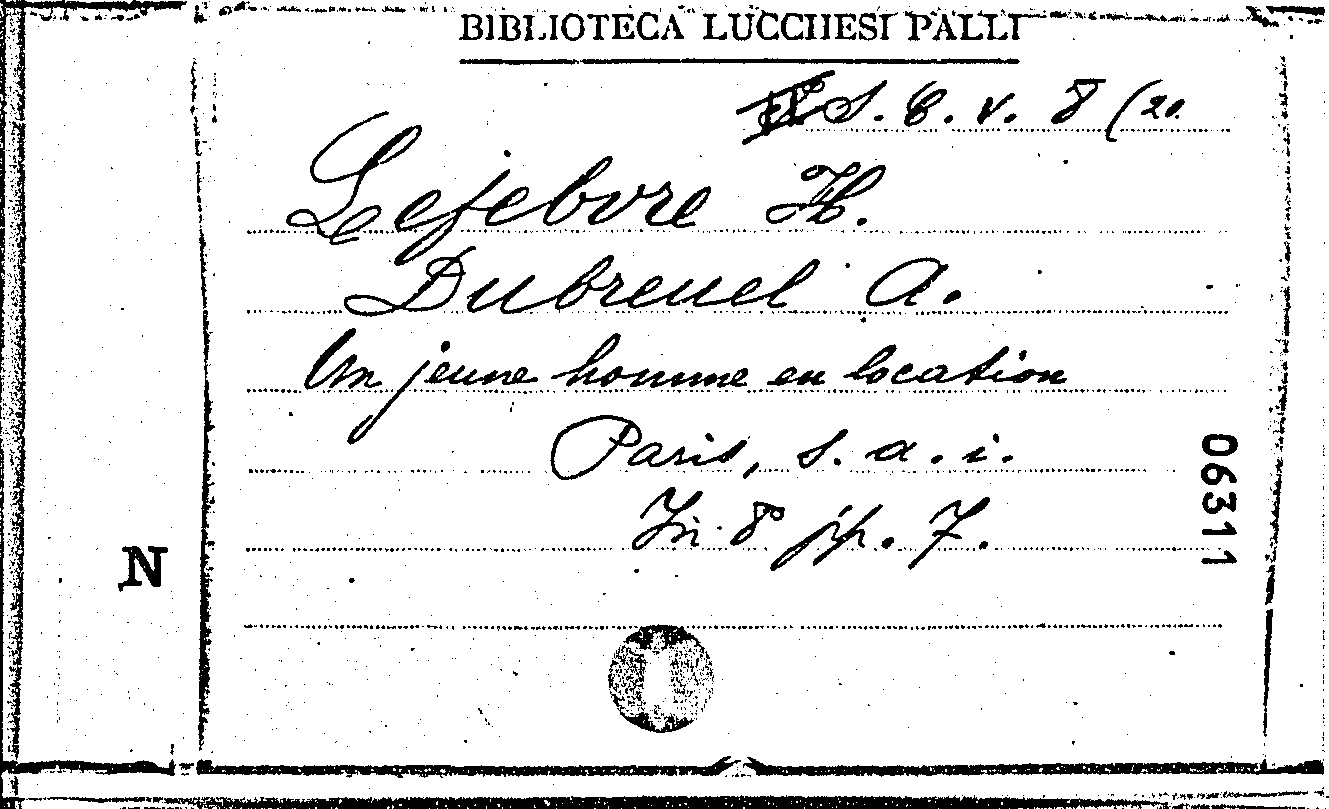 BIBLIOTECA LUCCHESI PALLI
S. C. v. 8 (20.
Lefebvre H.
Dubreuel A.
Un jeune homme en location
Paris, s. a. i.
In 8° pp. 7.
06311
N